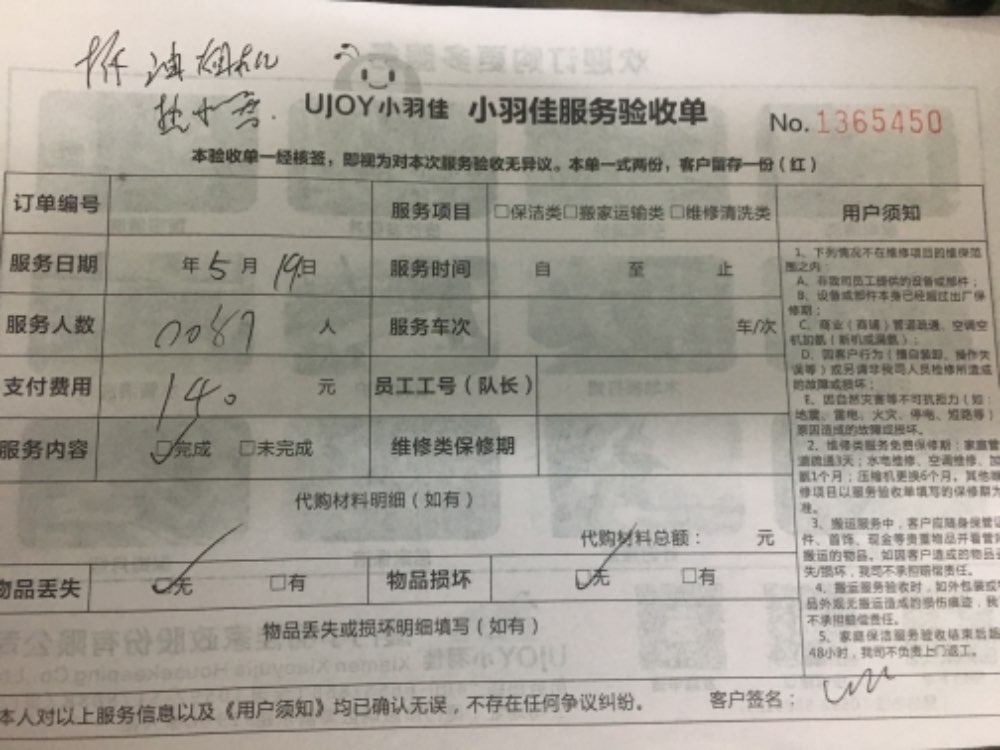 拆油烟机
热水器.
UJOY小羽佳 小羽佳服务验收单
No. 1365450
本验收单一经核签，即视为对本次服务验收无异议。本单一式两份，客户留存一份（红）
订单编号 服务项目 □保洁类□搬家运输类□维修清洗类
服务日期 年 5 月 19 日 服务时间 自 至 止
服务人数 0087 人 服务车次 年/次
支付费用 140 元 员工工号（队长）
服务内容 □完成 □未完成 维修类保修期
代购材料明细（如有）
代购材料总额： 元
物品丢失 □无 □有 物品损坏 □无 □有
物品丢失或损坏明细填写（如有）
本人对以上服务信息以及《用户须知》均已确认无误，不存在任何争议纠纷。 客户签名：
用户须知
1、下列情况不在维修项目的维保范
围之内：
A、非我司员工提供的设备或部件；
B、设备或部件本身已经超过出厂保
修期；
C、商业（商铺）管道疏通、空调空
机加氨（新机或漏氨）；
D、因客户行为（擅自装卸、操作失
误等）或另请非我司人员检修所造成
的故障或损坏；
E、因自然灾害等不可抗拒力（如：
地震、雷电、火灾、停电、短路等）
原因造成的故障或损坏。
2、维修类服务免费保修期：家庭管
道疏通3天；水电维修、空调维修、加
氨1个月；压缩机更换6个月。其他维
修项目以服务验收单填写的保修期为
准。
3、搬运服务中，客户应随身保管证
件、首饰、现金等贵重物品并看管好
搬运的物品。如因客户造成的物品丢
失/损坏，我司不承担赔偿责任。
4、搬运服务验收时，如外包装或物
品外观无搬运造成的损伤痕迹，我
不承担赔偿责任。
5、家庭保洁服务验收结束后超
48小时，我司不负责上门返工。